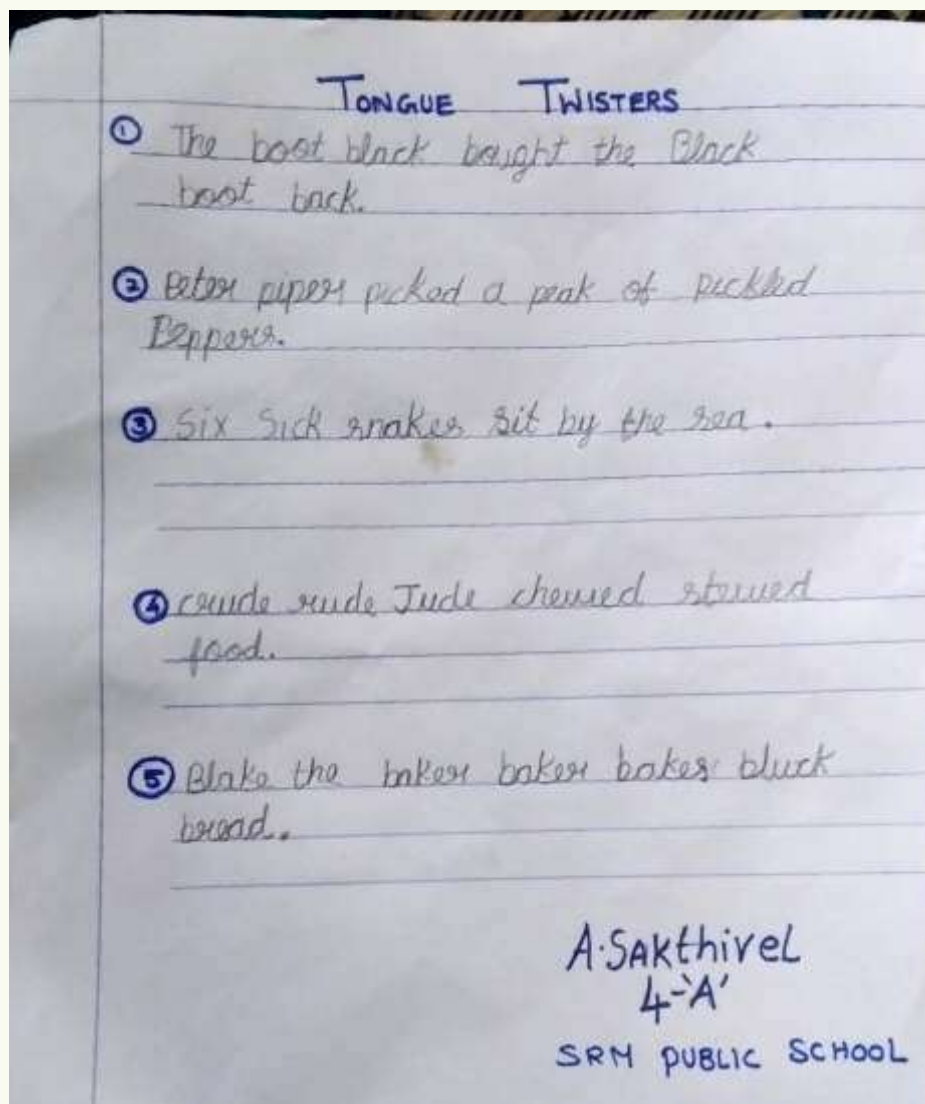 TONGUE TWISTERS
① The boot black bought the Black
boot back.
② Peter piper picked a peak of pickled
Peppers.
③ Six Sick snakes sit by the sea.
④ crude rude Jude chewed stewed
food.
⑤ Blake the baker baker bakes bluck
bread.
A.SAKthiveL
4-'A'
SRM PUBLIC SCHOOL